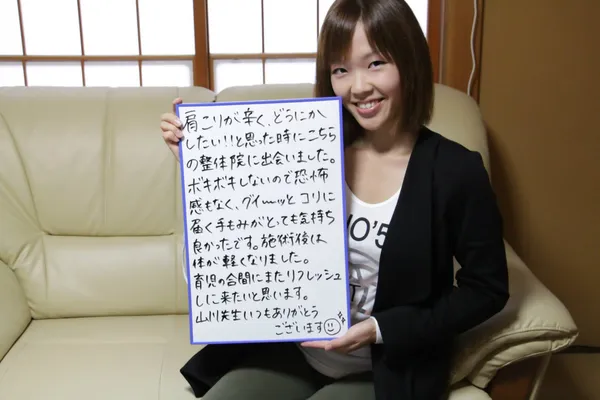 肩こりが辛く、どうにかしたい!!と思った時にこちらの整体院に出会いました。
ボキボキしないので恐怖
感もなく、グイーッとコリに
届く手もみがとっても気持ち
良かったです。施術後は
体が軽くなりました。
育児の合間にまたリフレッシュ
しに来たいと思います。
山川先生いつもありがとう
ございます
NO'5